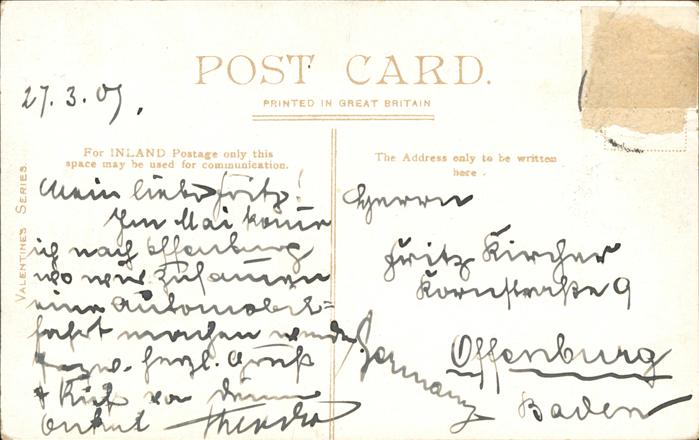 POST CARD.
PRINTED IN GREAT BRITAIN
27.3.07.
For INLAND Postage only this
space may be used for communication.
The Address only to be written
here.
VALENTINES SERIES
Mein lieber Fritz!
Im Mai komme
ich nach Offenburg
wo wir zusammen
eine Automobil=
fahrt machen werden
herzl. Gruß
+ Kuß von deinem
Onkel Theodor
Herrn
Fritz Kircher
Kornstraße 9
Offenburg
Baden
Germany